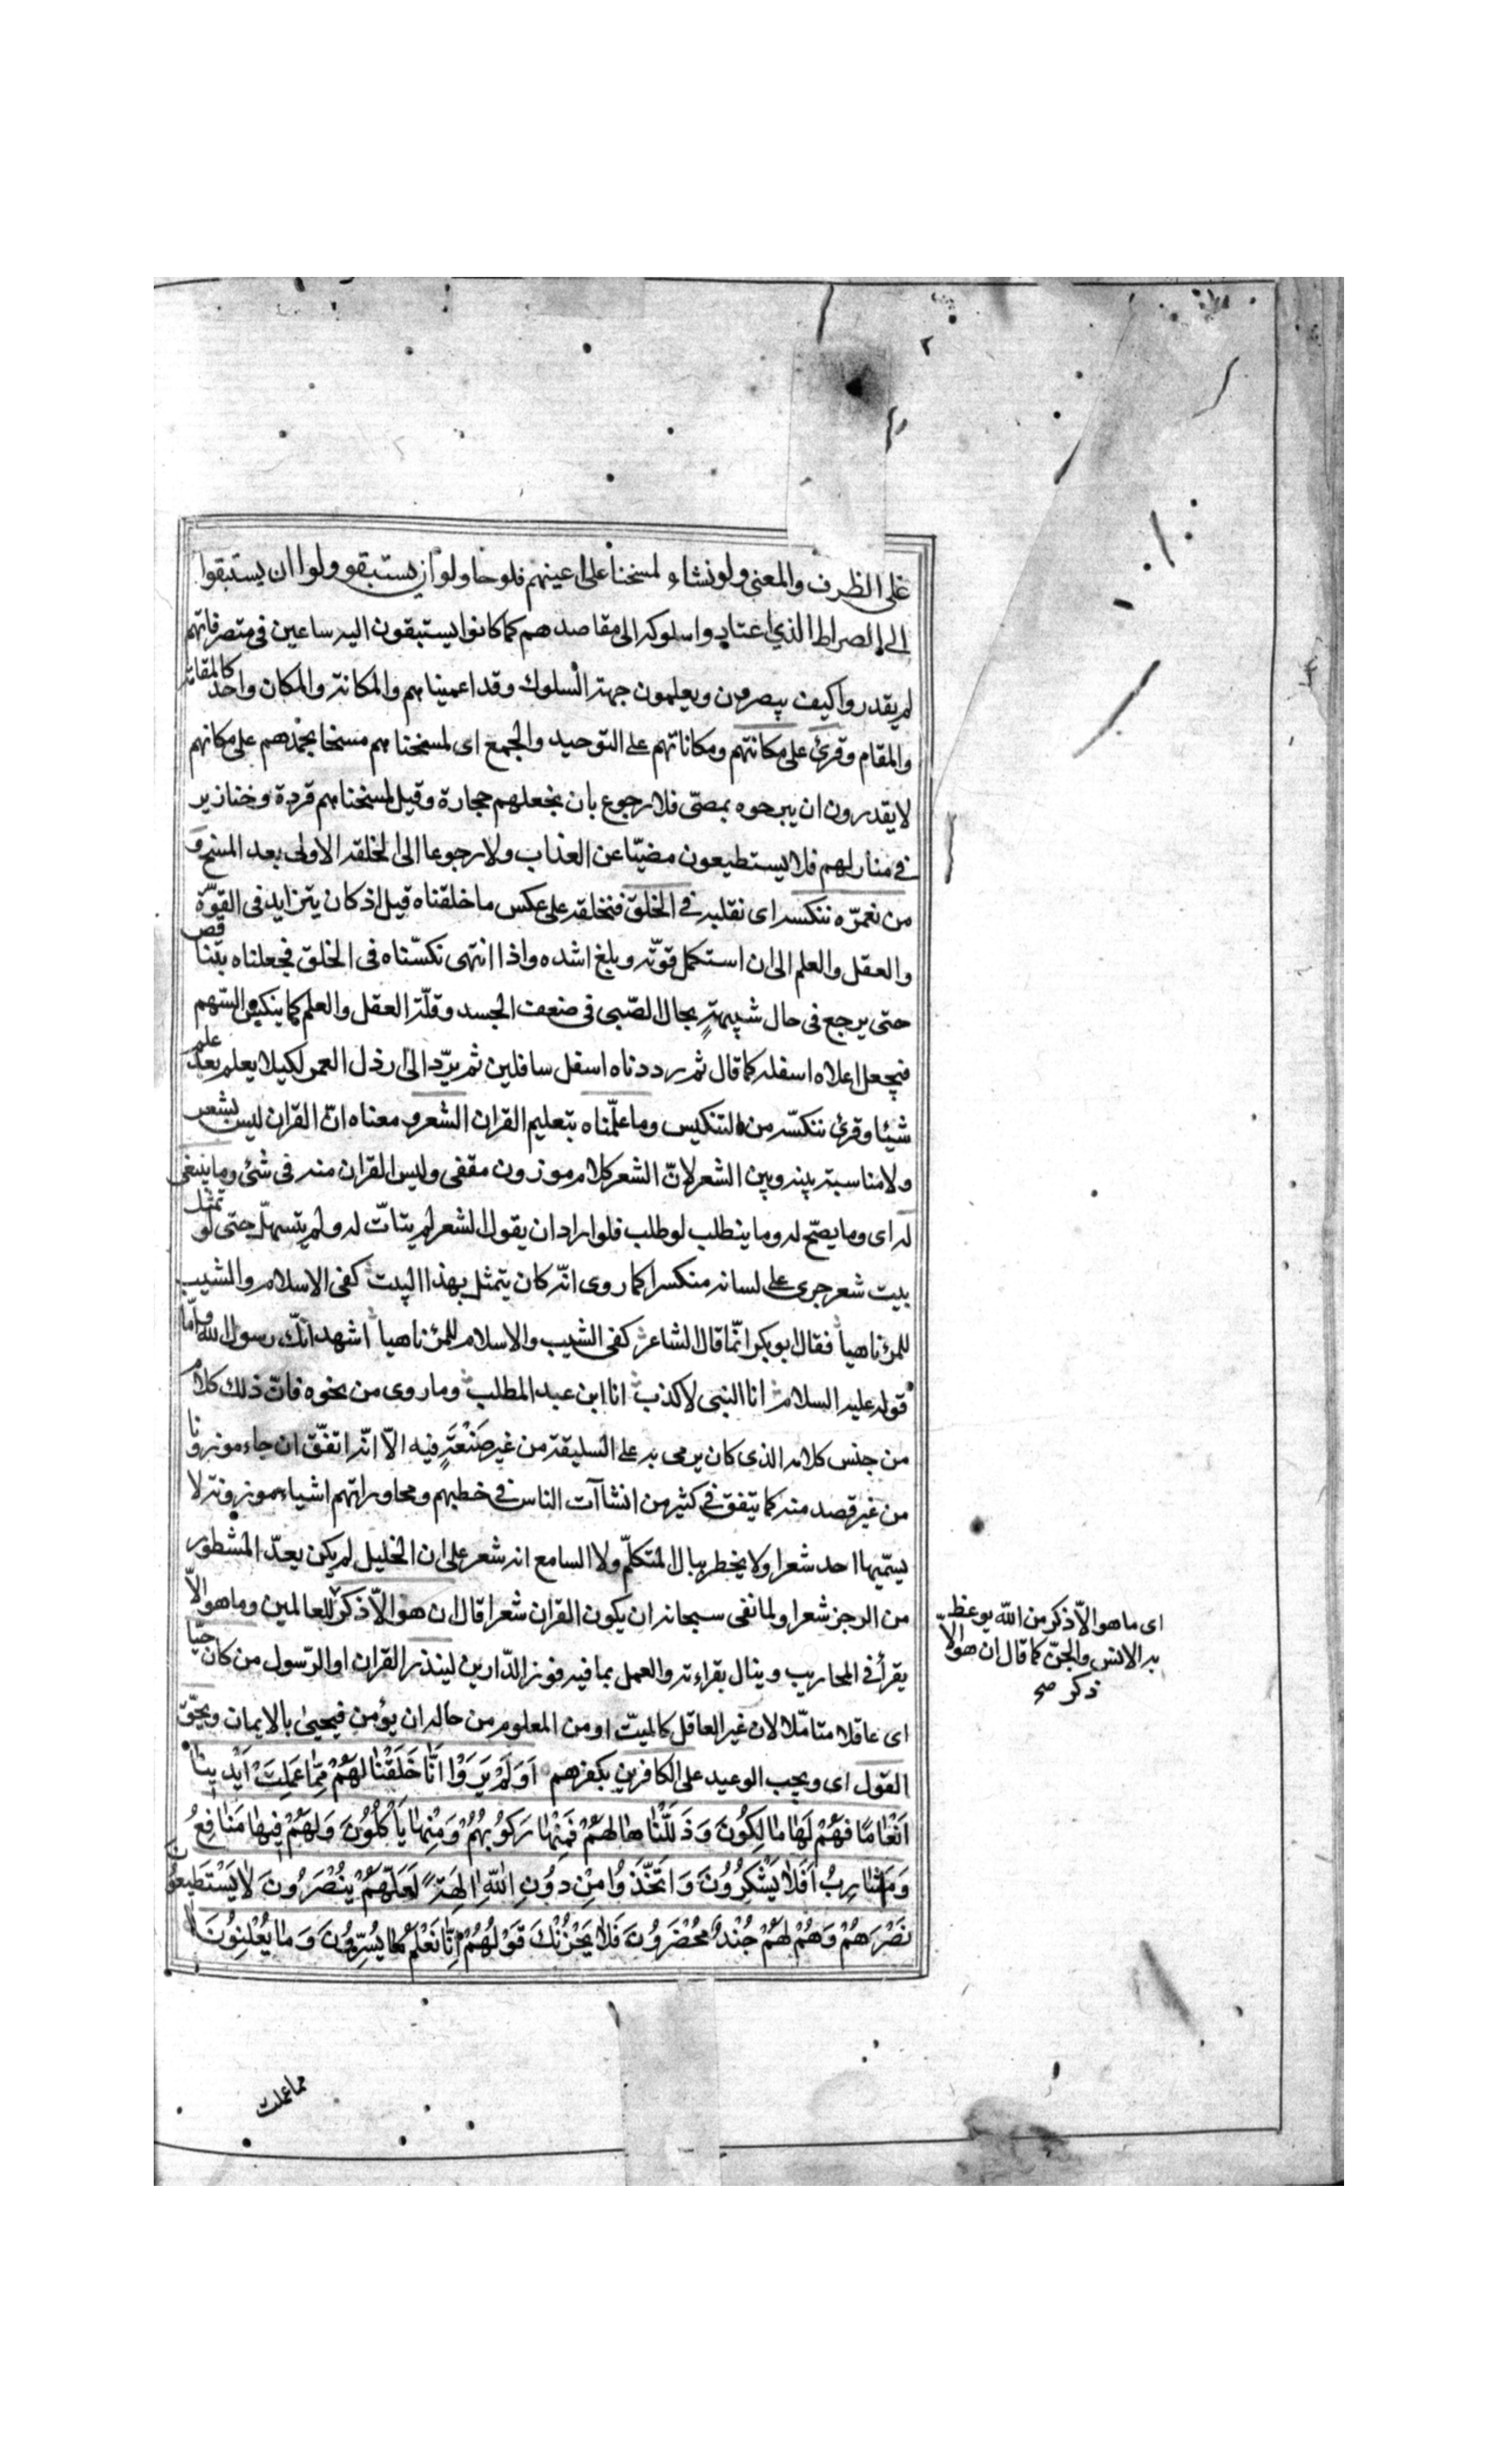 على الظرف والمعنى ولو نشاء لمسخنا على اعينهم فلو حاولوا ان يستبقوا ولوا ان يستبقوا
الى الصراط الذي اعتادوا سلوكه الى مقاصدهم كما كانوا يستبقون اليه ساعين في متصرفاتهم
لم يقدروا كيف يبصرون ويعلمون جهة السلوك وقد اعميناهم والمكانة والمكان واحد كالمقامة
والمقام وقرئ على مكانتهم ومكاناتهم على التوحيد والجمع اى لمسخناهم مسخا يجمدهم على مكانهم
لا يقدرون ان يبرحوه بمضى فلا رجوع بان نجعلهم حجارة وقيل لمسخناهم قردة وخنازير
في منازلهم فلا يستطيعون مضيّا عن العذاب ولا رجوعا الى الخلقة الاولى بعد المسخ و
من نعمّره ننكسه اى نقلبه في الخلق فنخلقه على عكس ما خلقناه قبل اذ كان يتزايد فى القوّة
والعقل والعلم الى ان استكمل قوّته وبلغ اشده واذا انتهى نكسّناه فى الخلق فجعلناه يتناقص
حتى يرجع فى حال شبيهةٍ بحال الصّبى فى ضعف الجسد وقلّة العقل والعلم كما ينكس السّهم
فيجعل اعلاه اسفله كما قال ثم رددناه اسفل سافلين ثم يردّ الى ارذل العمر لكيلا يعلم بعد علم
شيئا وقرئ ننكسّه من التنكيس وما علّمناه بتعليم القران الشعر ومعناه انّ القران ليس بشعر
ولا مناسبة بينه وبين الشعر لانّ الشعر كلام موزون مقفى وليس القران منه فى شئ وما ينبغى
له اى وما يصحّ له وما ينطلب لو طلب فلو اراد ان يقول الشعر لم يتاتّ له ولم يتسهل حتى لو تمثل
بيت شعر جرى على لسانه منكسرا كما روى انّه كان يتمثل بهذا البيت كفى الاسلام والشيب
للمرء ناهيا فقال ابو بكر انّما قال الشاعر كفى الشيب والاسلام للمرء ناهيا اشهد انّك رسول الله وامّا
قوله عليه السلام انا النبى لا كذب انا ابن عبد المطلب وما روى من نحوه فانّ ذلك كلام
من جنس كلامه الذى كان يرمى به على السليقة من غير صَنْعَةٍ فيه الاّ انّه اتفّق ان جاء موزونا
من غير قصد منه كما يتفق في كثير من انشاآت الناس في خطبهم ومحاوراتهم اشياء موزونة لا
يسمّيها احد شعرا ولا يخطر ببال المتكلّم ولا السامع انه شعر على ان الخليل لم يكن يعدّ المشطور
من الرجز شعرا ولما نفى سبحانه ان يكون القران شعرا قال ان هو الاّ ذكر للعالمين وما هو الاّ
يقرأ في المحاريب وينال بقراءته والعمل بما فيه فوز الدّارين لينذر القران او الرّسول من كان حيّا
اى عاقلا متامّلا لان غير العاقل كالميّت او من المعلوم من حاله ان يؤمن فيحيى بالايمان ويحقّ
القول اى ويجب الوعيد على الكافرين بكفرهم اَوَلَمْ يَرَوْا اَنَّا خَلَقْنا لَهُمْ مِمّا عَمِلَتْ اَيْدينا
اَنْعامًا فَهُمْ لَها مالِكُونَ وَذَلَّلْناها لَهُمْ فَمِنْها رَكُوبُهُمْ وَمِنْها يَأْكُلُونَ وَلَهُمْ فيها مَنافِعُ
وَمَشارِبُ اَفَلا يَشْكُرُونَ وَاتَّخَذُوا مِنْ دُونِ اللّهِ الِهَةً لَعَلَّهُمْ يُنْصَرُونَ لا يَسْتَطيعُونَ
نَصْرَهُمْ وَهُمْ لَهُمْ جُنْدٌ مُحْضَرُونَ فَلا يَحْزُنْكَ قَوْلُهُمْ اِنّا نَعْلَمُ ما يُسِرُّونَ وَما يُعْلِنُونَ
اى ما هو الاّ ذكر من اللّه يوعظ
به الانس والجنّ كما قال ان هو الاّ
ذكر صح
مما عملت